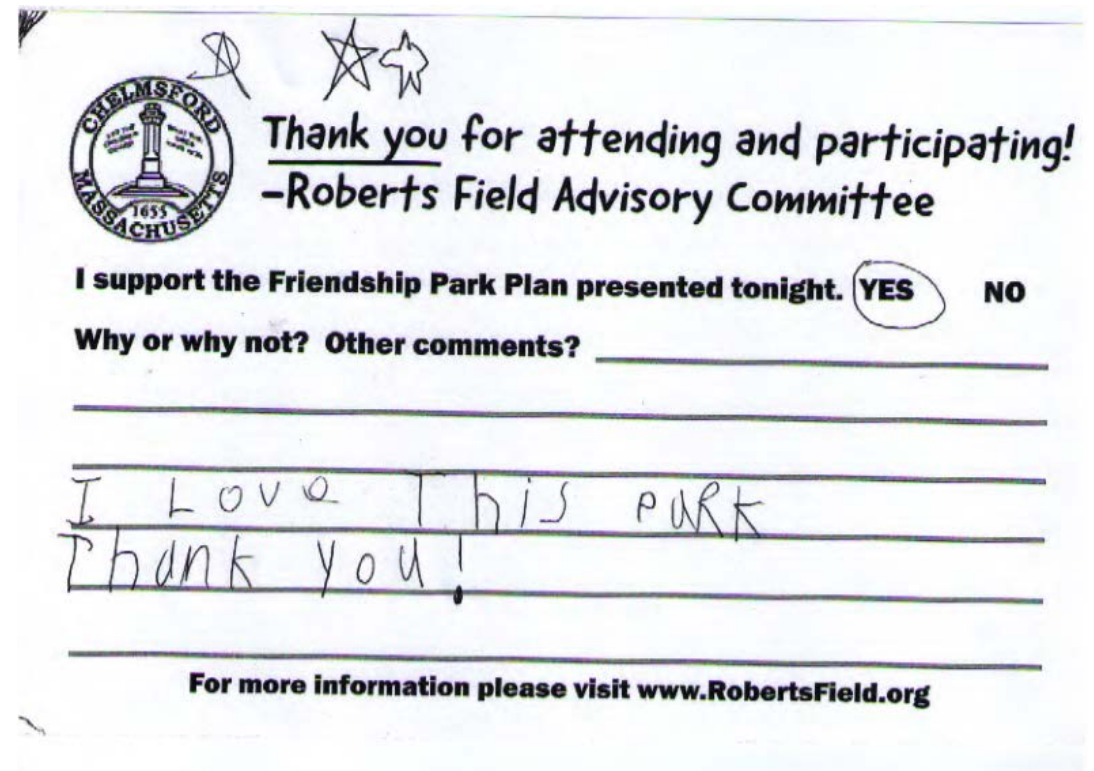 CHELMSFORD
MASSACHUSETTS
1655
Thank you for attending and participating!
-Roberts Field Advisory Committee
I support the Friendship Park Plan presented tonight. YES NO
Why or why not? Other comments?
I Love This park
Thank you!
For more information please visit www.RobertsField.org